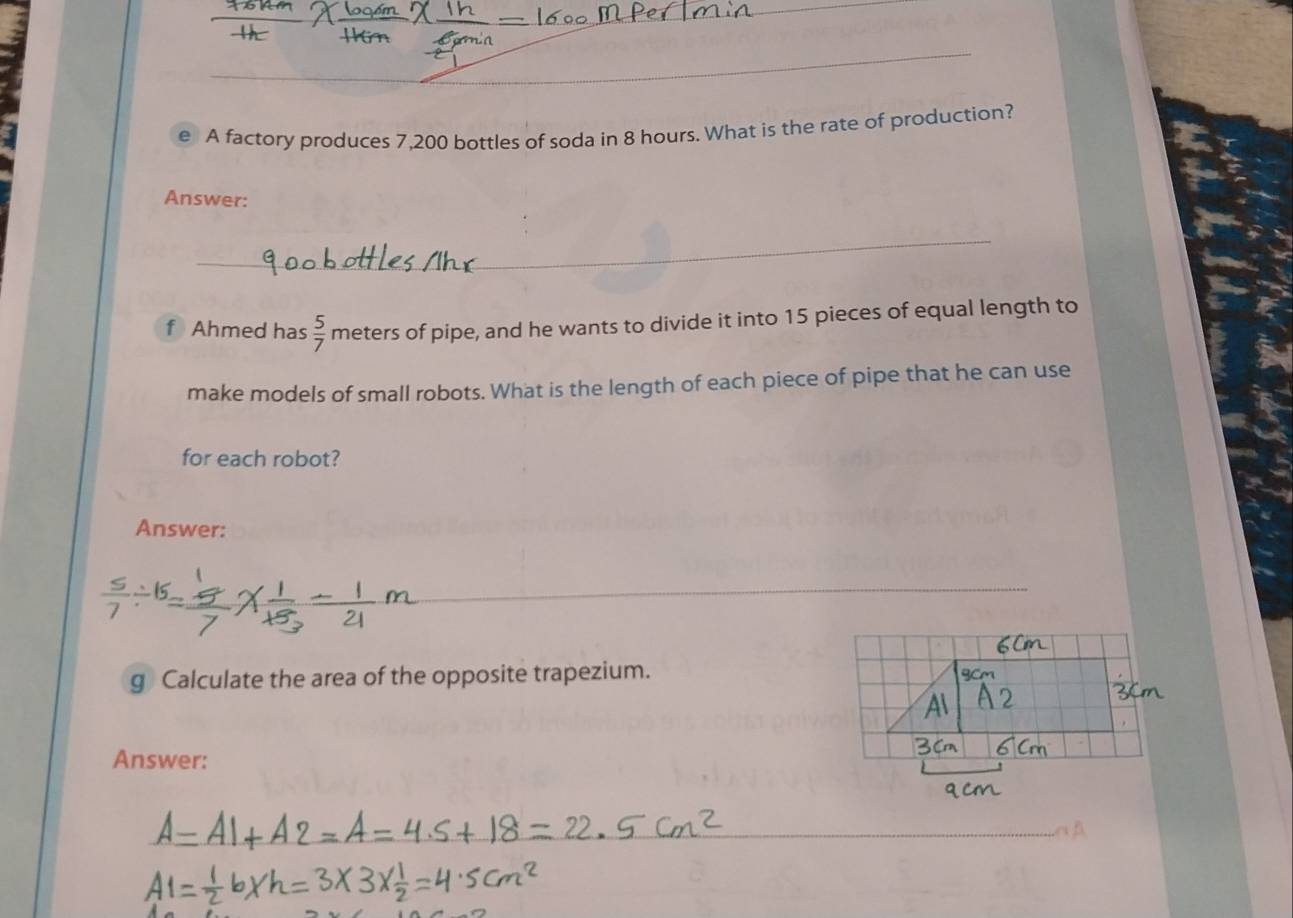 X 1h = 1600 m per 1min
e A factory produces 7,200 bottles of soda in 8 hours. What is the rate of production?
Answer:
900bottles/1hr
f Ahmed has 5/7 meters of pipe, and he wants to divide it into 15 pieces of equal length to
make models of small robots. What is the length of each piece of pipe that he can use
for each robot?
Answer:
5/7 ÷ 15 = 5/7 X 1/15 = 1/21 m
g Calculate the area of the opposite trapezium.
6cm
3cm
A1 A2
3cm
3cm 6cm
9cm
Answer:
A = A1 + A2 = A = 4.5 + 18 = 22.5 cm²
A1 = 1/2 b x h = 3 x 3 x 1/2 = 4.5 cm²